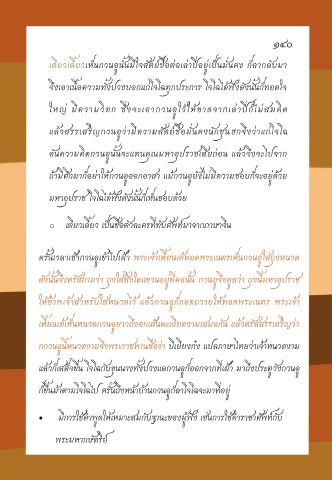 ๑๔๐
เตียวเลี้ยวเห็นกวนอูนั้นมีใจสัตย์ซื่อต่อเล่าปี่อยู่เป็นมั่นคง ก็ลากลับมา
จึงเอาเนื้อความทั้งปวงบอกแก่โจโฉทุกประการ โจโฉได้ฟังดังนั้นก็ทอดใจ
ใหญ่ มีความวิตก ซึ่งจะเอากวนอูไว้ให้ขาดจากเล่าปี่ก็ไม่สมคิด
แล้วสรรเสริญกวนอูว่ามีความสัตย์ซื่อมั่นคงนัก ซุนฮกจึงว่าแก่โจโฉ
อันความคิดกวนอูนั้นจะแทนคุณมหาอุปราชเสียก่อน แล้วจึงจะไปจาก
ถ้ามีศึกมาก็อย่าให้กวนอูออกอาสา แม้กวนอูยังไม่มีความชอบก็จะอยู่ด้วย
มหาอุปราช โจโฉได้ฟังดังนั้นก็เห็นชอบด้วย
o เตียวเลี้ยว เป็นชื่อตัวละครที่ทับศัพท์มาจากภาษาจีน
ครั้นเวลาเช้ากวนอูเข้าไปเฝ้า พระเจ้าเหี้ยนเต้ทอดพระเนตรเห็นกวนอูใส่ถุงหนวด
ดังนั้นจึงตรัสถามว่า ถุงใส่สิ่งใดแขวนอยู่ที่คอนั้น กวนอูจึงทูลว่า ถุงนี้มหาอุปราช
ให้ข้าพเจ้าสำหรับใส่หนวดไว้ แล้วกวนอูก็ถอดถวายให้ทอดพระเนตร พระเจ้า
เหี้ยนเต้เห็นหนวดกวนอูยาวถึงอกเส้นละเอียดงามเสมอกัน แล้วตรัสสรรเสริญว่า
กวนอูนี้หนวดงามจึงพระราชทานชื่อว่า บีเยียงกัง แปลภาษาไทยว่าเจ้าหนวดงาม
แล้วก็เสด็จขึ้น โจโฉกับขุนนางทั้งปวงแลกวนอูก็ออกจากที่เฝ้า มาถึงประตูวังกวนอู
ก็ขึ้นม้าตามโจโฉไป ครั้นถึงหน้าบ้านกวนอูก็ลาโจโฉจะมาที่อยู่
• มีการใช้คำพูดให้เหมาะสมกับฐานะของผู้ฟัง เช่นการใช้คำราชาศัพท์กับ
พระมหากษัตริย์